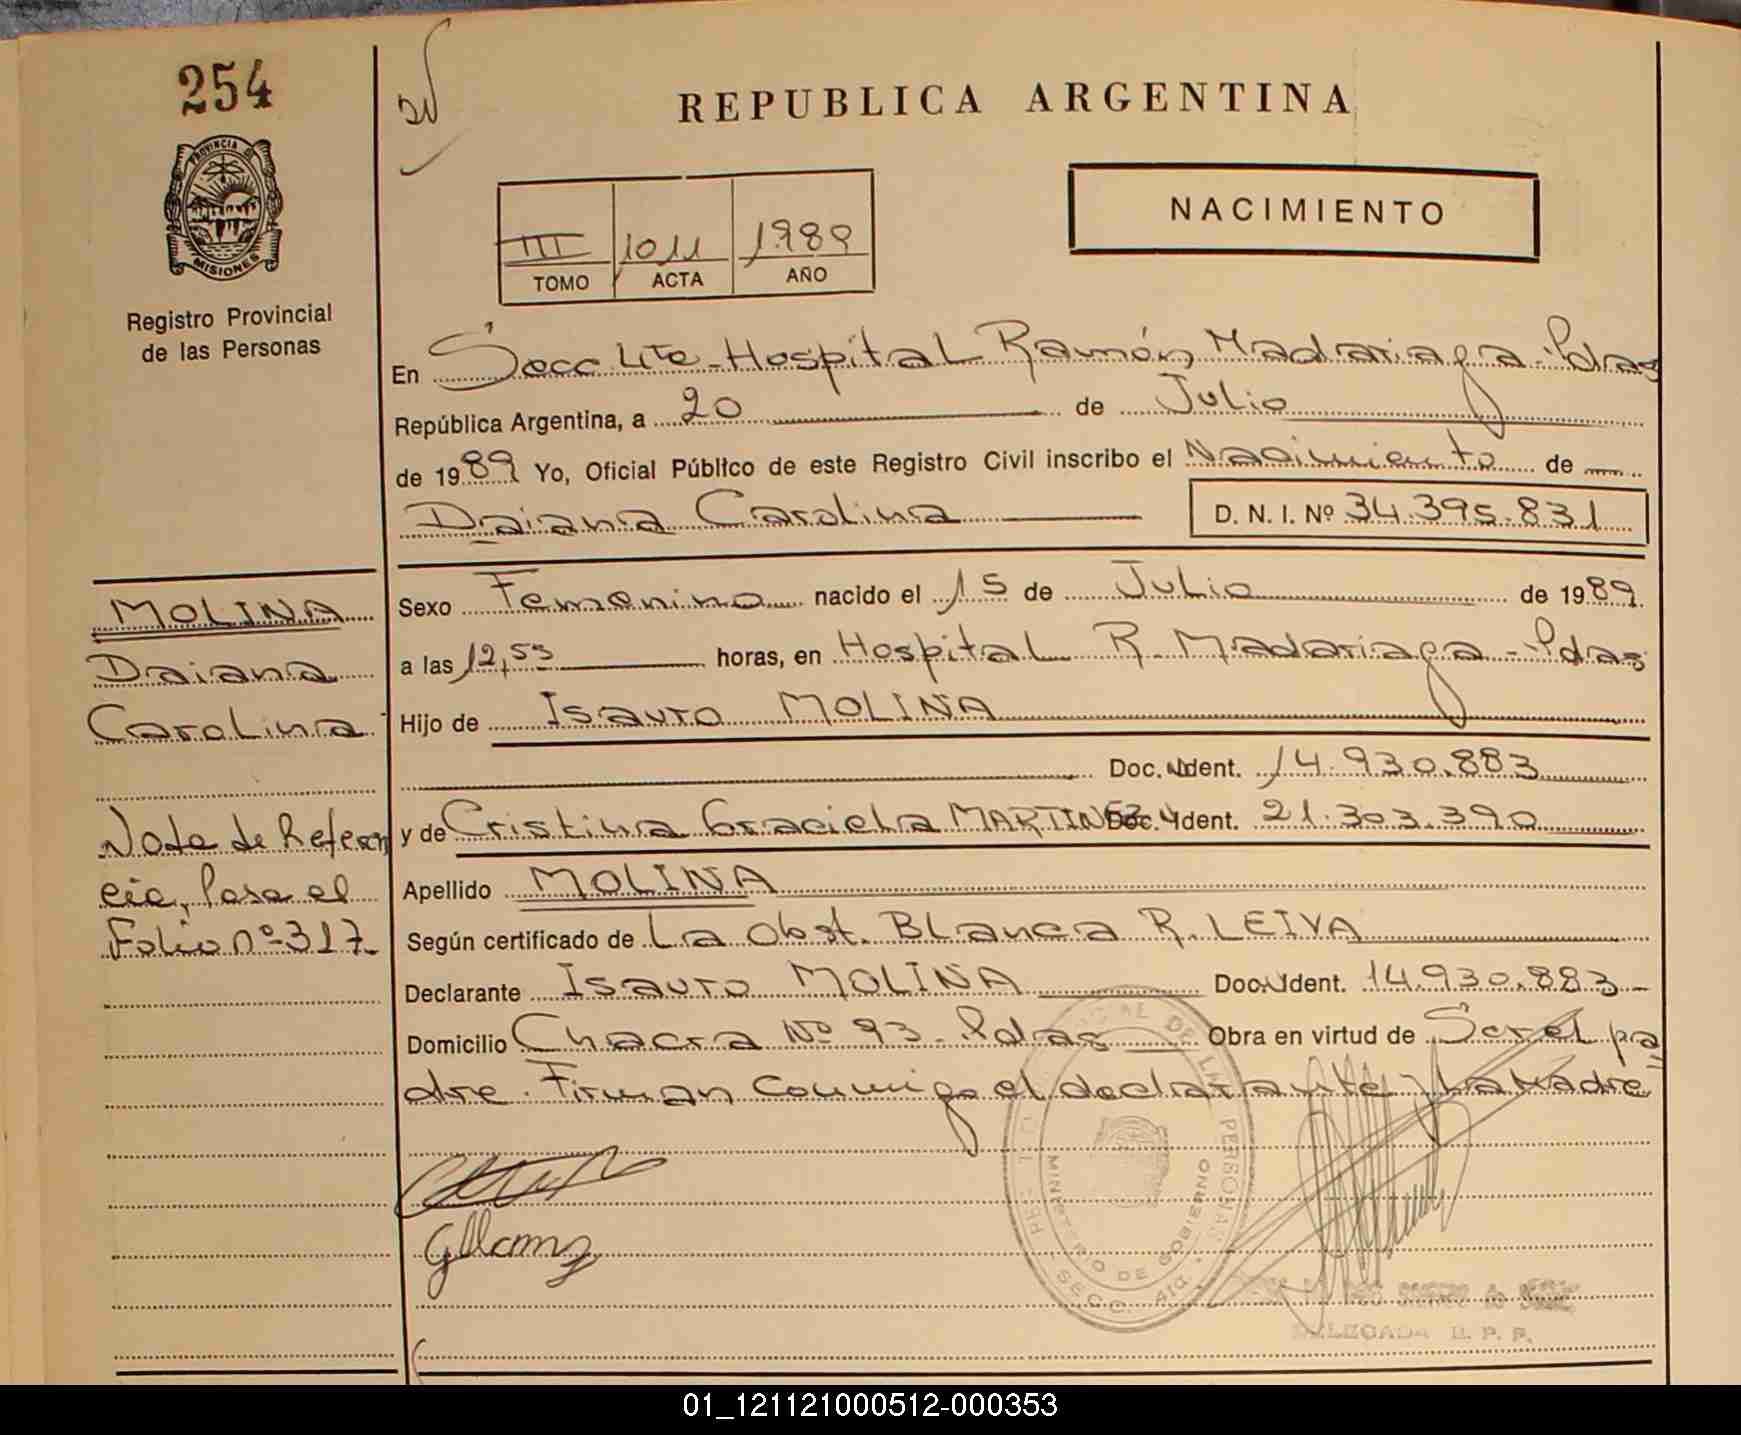 254
REPUBLICA ARGENTINA
PROVINCIA DE
MISIONES
Registro Provincial
de las Personas
NACIMIENTO
III 1011 1989
TOMO ACTA AÑO
En Secc 4ta - Hospital Ramón Madariaga - Pdas
República Argentina, a 20 de Julio
de 1989 Yo, Oficial Público de este Registro Civil inscribo el Nacimiento de
Daiana Carolina D. N. I. Nº 34.395.831
Sexo Femenino nacido el 15 de Julio de 1989
a las 12,53 horas, en Hospital R. Madariaga - Pdas
Hijo de Isauro MOLINA
Doc. Ident. 14.930.883
y de Cristina Graciela MARTINEZ Doc. Ident. 21.303.390
Apellido MOLINA
Según certificado de La Obst. Blanca R. LEIVA
Declarante Isauro MOLINA Doc. Ident. 14.930.883
Domicilio Chacra Nº 93 - Pdas Obra en virtud de Ser el pa
dre. Firman conmigo el declarante y La Madre
MOLINA
Daiana
Carolina
Nota de Referen
cia, Pasa al
Folio nº 317
MINISTERIO DE GOBIERNO
SECC. 4ta.
DELEGADA R. P. P.
01_121121000512-000353